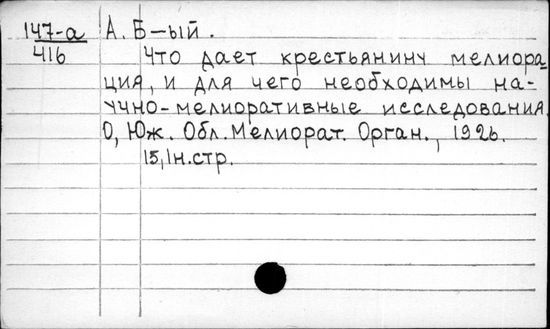 147-а
416
А. Б-ый.
Что дает крестьянину мелиора-
ция, и для чего необходимы на-
учно-мелиоративные исследования.
О, Юж. Обл. Мелиорат. Орган., 1926.
15, 1н. стр.